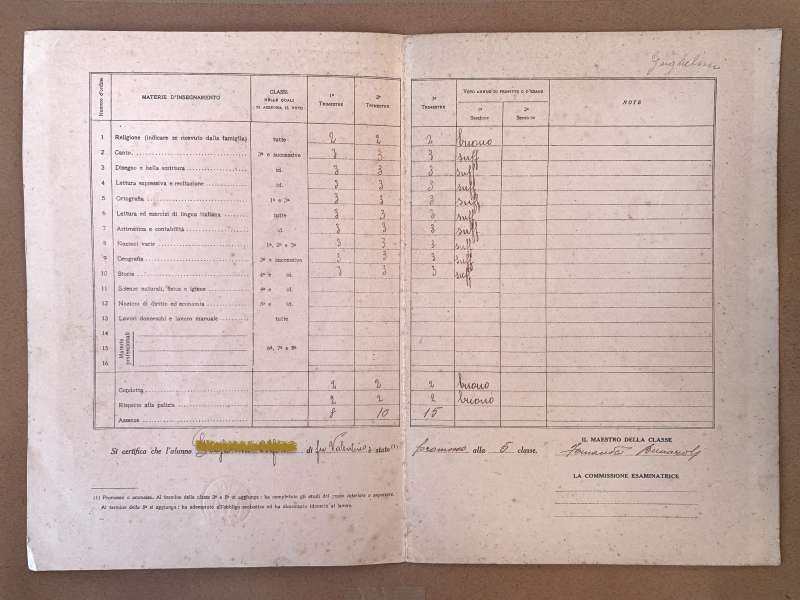 Guglielmi
Numero d'ordine
MATERIE D'INSEGNAMENTO
CLASSI NELLE QUALI SI ASSEGNA IL VOTO
1º TRIMESTRE
2º TRIMESTRE
3º TRIMESTRE
VOTO ANNUO DI PROFITTO O D'ESAME
1ª SESSIONE
2ª SESSIONE
NOTE
1 Religione (indicare se ricevuto dalla famiglia) tutte 2 2 2 buono
2 Canto 3ª e successive 3 3 3 suff
3 Disegno e bella scrittura id. 3 3 3 suff
4 Lettura espressiva e recitazione id. 3 3 3 suff
5 Ortografia 3 3 3 suff
6 Lettura ed esercizi di lingua italiana tutte 3 3 3 suff
7 Aritmetica e contabilità id. 3 3 3 suff
8 Nozioni varie 1ª, 2ª e 3ª 3 3 3 suff
9 Geografia 3ª e successive 3 3 3 suff
10 Storia id. 3 3 3 suff
11 Scienze naturali, fisica e igiene 4ª e id.
12 Nozioni di diritto ed economia 5ª e id.
13 Lavori donneschi e lavoro manuale tutte
14
15 Materie professionali 6ª, 7ª e 8ª
16
Condotta 2 2 2 buono
Rispetto alla pulizia 2 2 2 buono
Assenze 8 10 15
Si certifica che l'alunno di fu Valentino è stato (1) promosso alla 5 classe.
IL MAESTRO DELLA CLASSE
LA COMMISSIONE ESAMINATRICE
(1) Promosso o ammesso. Al termine della classe 3ª e 5ª si aggiunga: ha completato gli studi del grado inferiore o superiore.
Al termine della 8ª si aggiunga: ha adempiuto all'obbligo scolastico ed ha dimostrato idoneità al lavoro.